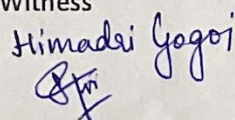 Witness
Himadri Gogoi